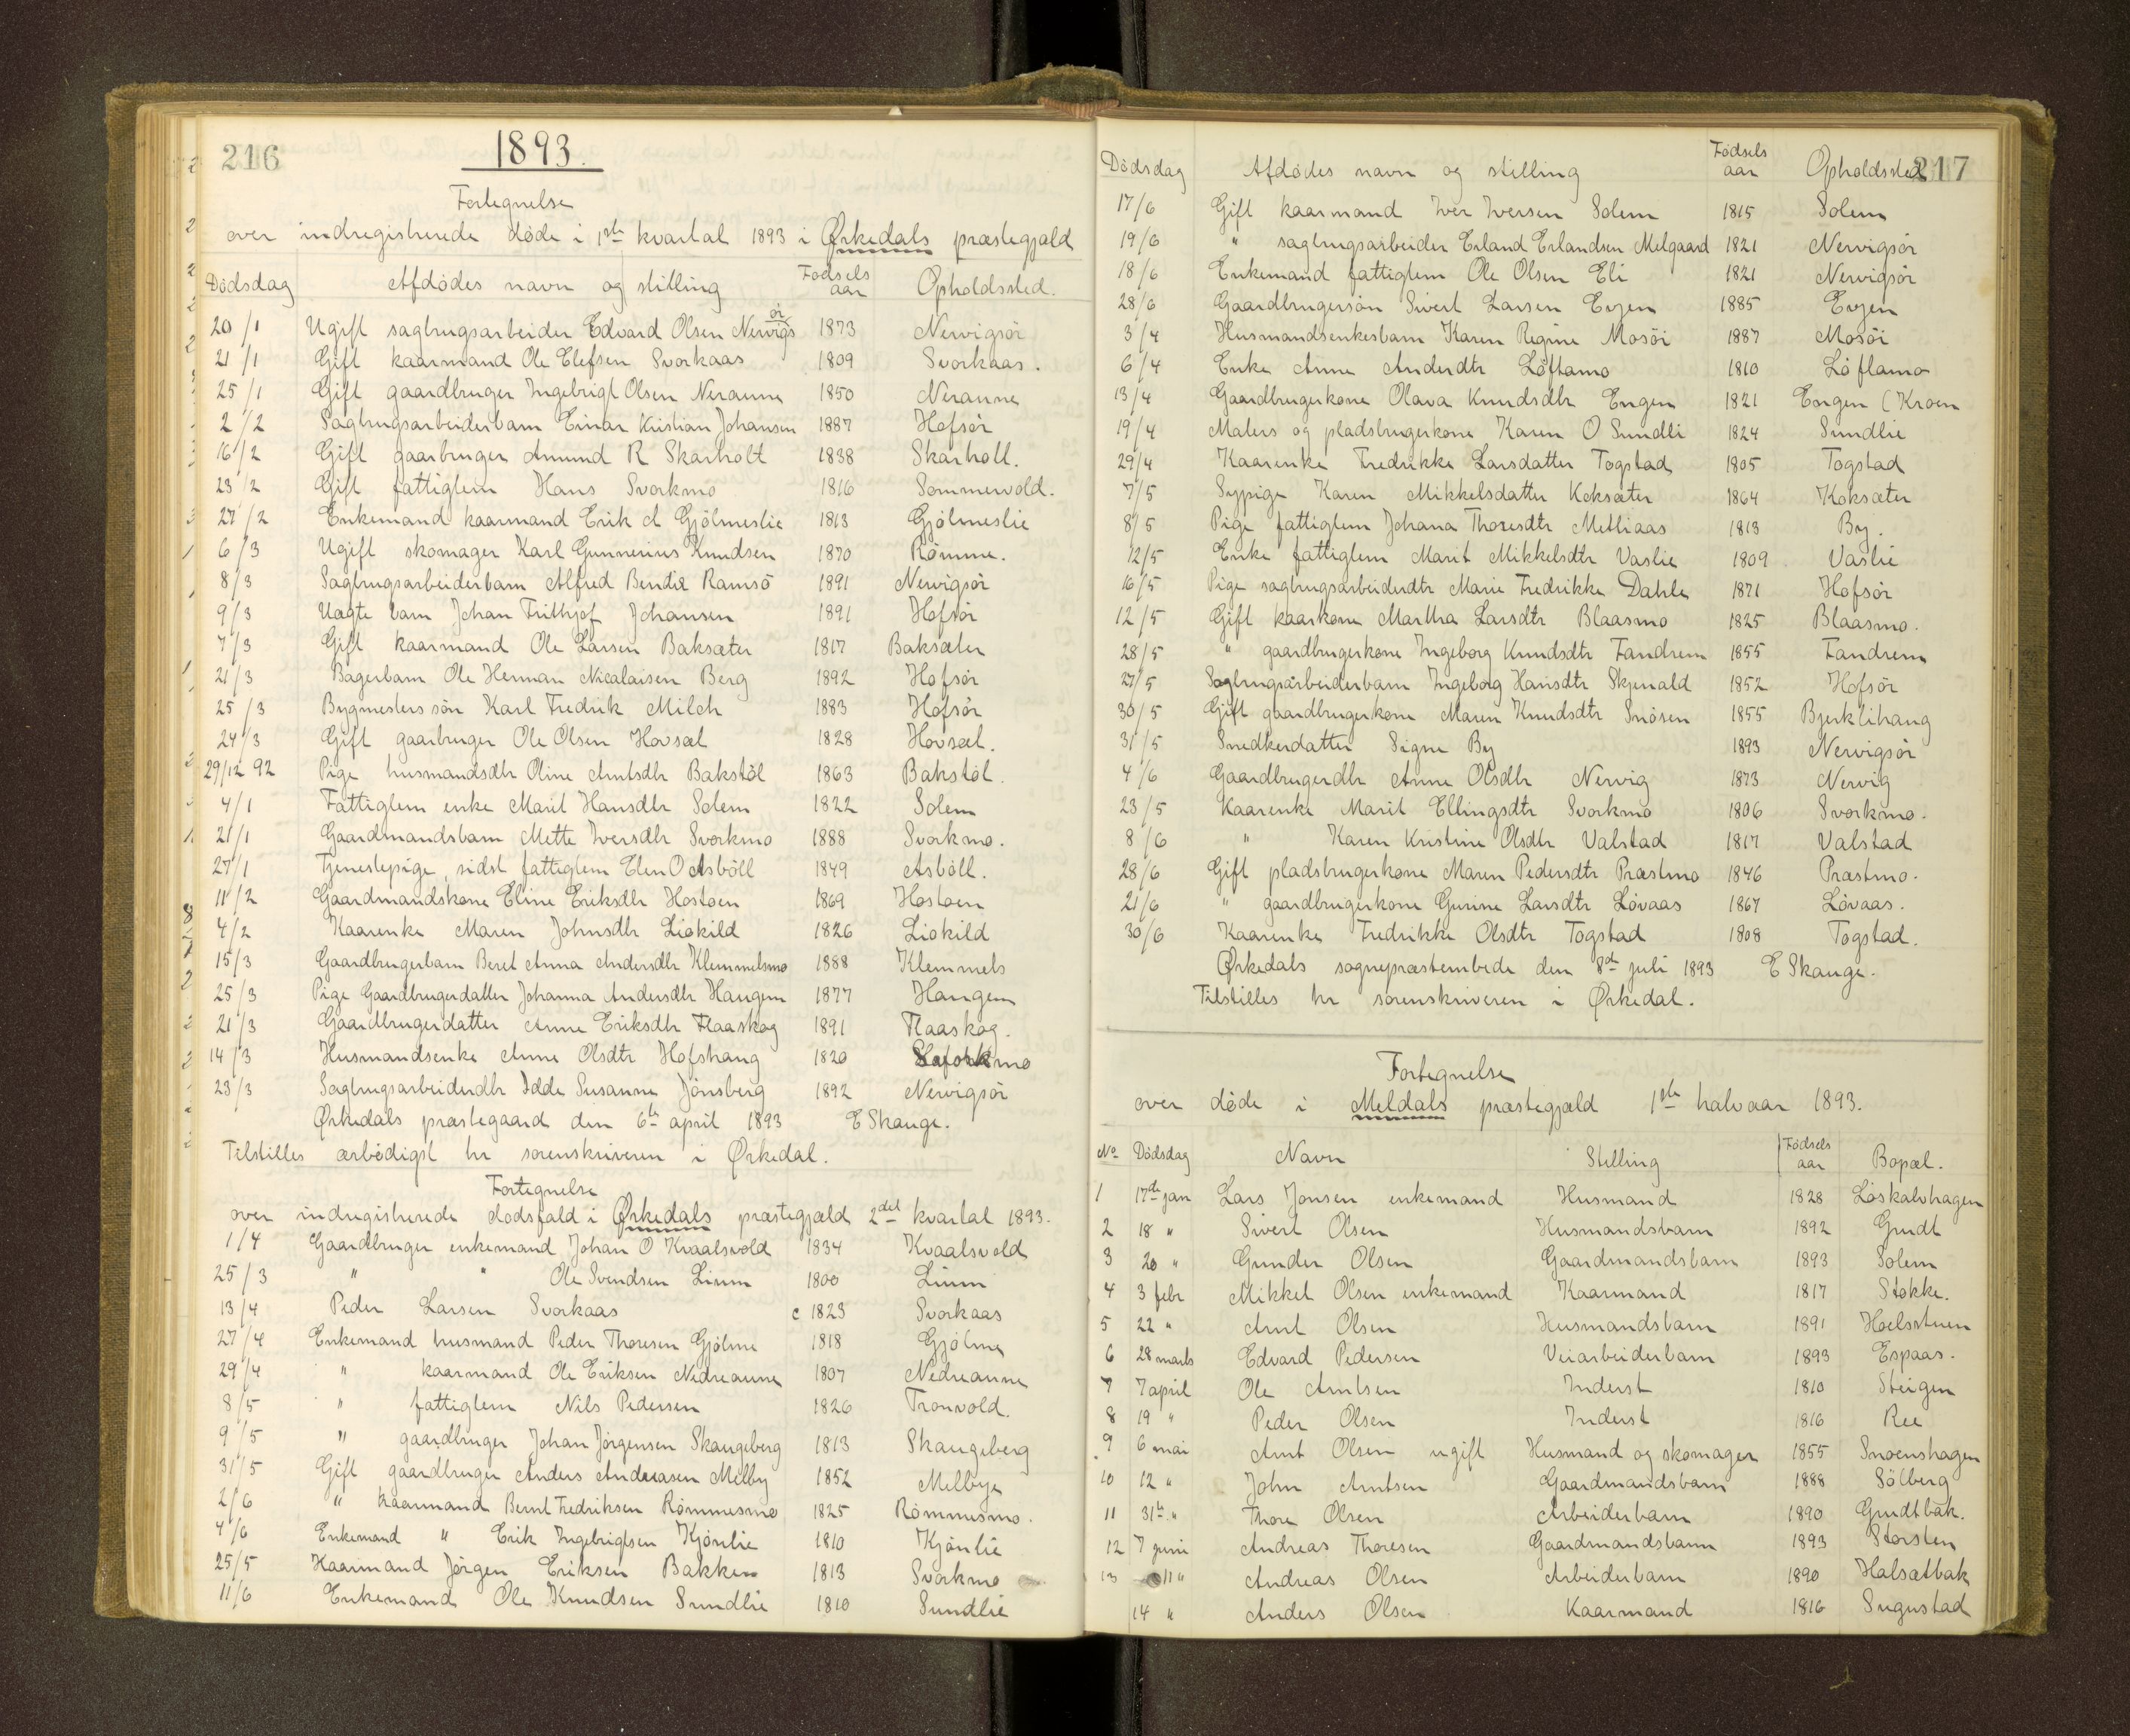 216
1893.
Fortegnelse
over indregistrerede døde i 1ste kvartal 1893 i Ørkedals præstegjæld
Dödsdag Afdödes navn og stilling Födsels aar Opholdssted.
20/1 Ugift sagbrugsarbeider Edvard Olsen Nervigsör 1873 Nervigsör
21/1 Gift kaarmand Ole Elefsen Svorkaas 1809 Svorkaas.
25/1 Gift gaardbruger Ingebrigt Olsen Neraune 1850 Neraune
2/2 Sagbrugsarbeiderbarn Einar Kristian Johansen 1887 Hofsör
16/2 Gift gaarbruger Amund R Skarholt 1838 Skarholt.
23/2 Gift fattiglem Hans Svorkmo 1816 Sommervold.
27/2 Enkemand kaarmand Erik A Gjölmeslie 1813 Gjölmeslie
6/3 Ugift skomager Karl Gunnerius Knudsen 1870 Römme.
8/3 Sagbrugsarbeiderbarn Alfred Bendix Ramsö 1891 Nervigsör
9/3 Uægte barn Johan Frithjof Johansen 1891 Hofsör
7/3 Gift kaarmand Ole Larsen Baksæter 1817 Baksæter
21/3 Bagerbarn Ole Herman Nicolaisen Berg 1892 Hofsör
25/3 Bygmesters sön Karl Fredrik Milch 1883 Hofsör
24/3 Gift gaarbruger Ole Olsen Hovsæt 1828 Hovsæt.
29/12 92 Pige husmandsdtr Oline Arntsdtr Bakstöl 1863 Bakstöl.
4/1 Fattiglem enke Marit Hansdtr Solem 1822 Solem
21/1 Gaardmandsbarn Mette Iversdtr Svorkmo 1888 Svorkmo.
27/1 Tjenestepige, sidst fattiglem Elen O Asböll 1849 Asböll.
11/2 Gaardmandskone Eline Eriksdtr Hostoen 1869 Hostoen
4/2 Kaarenke Maren Johnsdtr Liokild 1826 Liokild
15/3 Gaardbrugerbarn Beret Anna Andersdtr Klemmetsmo 1888 Klemmets
25/3 Pige Gaardbrugerdatter Johanna Andersdtr Haugen 1877 Haugen
21/3 Gaardbrugerdatter Anne Eriksdtr Flaaskog 1891 Flaaskog.
14/3 Husmandsenke Anne Olsdtr Hofshaug 1820
23/3 Sagbrugsarbeiderdtr Idde Susanne Jönsberg 1892 Nervigsör
Ørkedals præstegaard den 6te april 1893 E Skauge.
Tilstilles ærbödigst hr sorenskriveren i Ørkedal.
Fortegnelse
over indregistrerede dodsfald i Ørkedals præstegjæld 2det kvartal 1893.
1/4 Gaardbruger enkemand Johan O Kvaalsvold 1834 Kvaalsvold
25/3 " " Ole Svendsen Lium 1800 Lium
13/4 Peder Larsen Svorkaas c 1823 Svorkaas
27/4 Enkemand husmand Peder Thoresen Gjölme 1818 Gjölme
29/4 " kaarmand Ole Eriksen Nedreaune 1807 Nedreaune
8/5 " fattiglem Nils Pedersen 1826 Tronvold.
9/5 " gaardbruger Johan Jörgensen Skaugeberg 1813 Skaugeberg
31/5 Gift gaardbruger Anders Andreasen Melby 1852 Melbye
2/6 " kaarmand Bernt Fredriksen Römmesmo 1825 Römmesmo.
4/6 Enkemand " Erik Ingebrigtsen Kjönlie 1810 Kjönlie
25/5 Kaarmand Jörgen Eriksen Bakken 1813 Svorkmo
11/6 Enkemand Ole Knudsen Sundlie 1810 Sundlie
217
Dödsdag Afdödes navn og stilling Födsels aar Opholdssted
17/6 Gift kaarmand Iver Iversen Solem 1815 Solem
19/6 " sagbrugsarbeider Erland Erlandsen Melgaard 1821 Nervigsör
18/6 Enkemand fattiglem Ole Olsen Eli 1821 Nervigsör
28/6 Gaardbrugersön Sivert Larsen Evjen 1885 Evjen
3/4 Husmandsenkesbarn Karen Regine Mosöi 1887 Mosöi
6/4 Enke Anne Andersdtr Löftamo 1810 Löftamo
13/4 Gaardbrugerkone Olava Knudsdtr Engen 1821 Engen (Kroen
19/4 Malers og pladsbrugerkone Karen O Sundli 1824 Sundlie
29/4 Kaarenke Fredrikke Larsdatter Togstad 1805 Togstad
7/5 Sypige Karen Mikkelsdatter Koksæter 1864 Koksæter
8/5 Pige fattiglem Johana Thoresdtr Metliaas 1813 By.
12/5 Enke fattiglem Marit Mikkelsdtr Vaslie 1809 Vaslie
16/5 Pige sagbrugsarbeiderdtr Marie Fredrikke Dahle 1871 Hofsör
12/5 Gift kaarkone Martha Larsdtr Blaasmo 1825 Blaasmo.
28/5 " gaardbrugerkone Ingeborg Knudsdtr Fandrem 1855 Fandrem
27/5 Sagbrugsarbeiderbarn Ingeborg Hansdtr Skjenald 1852 Hofsör
30/5 Gift gaardbrugerkone Maren Knudsdtr Snösen 1855 Bjerklihaug
31/5 Snedkerdatter Signe By 1893 Nervigsör
4/6 Gaardbrugerdtr Anne Olsdtr Nervig 1873 Nervig
23/5 Kaarenke Marit Ellingsdtr Svorkmo 1806 Svorkmo.
8/6 " Karen Kristine Olsdtr Valstad 1817 Valstad
28/6 Gift pladsbrugerkone Maren Pedersdtr Præstmo 1846 Præstmo.
21/6 " gaardbrugerkone Gurine Larsdtr Lövaas 1867 Lövaas.
30/6 Kaarenke Fredrikke Olsdtr Togstad 1808 Togstad.
Ørkedals sognepræstembede den 8de juli 1893 E Skauge.
Tilstilles hr sorenskriveren i Ørkedal.
Fortegnelse
over döde i Meldals præstegjæld 1ste halvaar 1893.
No Dödsdag Navn Stilling Födsels aar Bopæl.
1 17de jan Lars Jonsen enkemand Husmand 1828 Löskalvhagen
2 18 " Sivert Olsen Husmandsbarn 1892 Grudt
3 20 " Gunder Olsen Gaardmandsbarn 1893 Solem
4 3 febr Mikkel Olsen enkemand Kaarmand 1817 Stokke.
5 22 " Arnt Olsen Husmandsbarn 1891 Hoelsstuen
6 28 marts Edvard Pedersen Veiarbeiderbarn 1893 Espaas.
7 7 april Ole Arntsen Inderst 1810 Steigen
8 19 " Peder Olsen Inderst 1816 Ree
9 6 mai Arnt Olsen ugift Husmand og skomager 1855 Snoenshagen
10 12 " John Arntsen Gaardmandsbarn 1888 Sölberg
11 31te " Thore Olsen Arbeiderbarn 1890 Grudtbak.
12 7 juni Andreas Thoresen Gaardmandsbarn 1893 Storsten
13 11 " Andreas Olsen Arbeiderbarn 1890 Halsætbak
14 " Anders Olsen Kaarmand 1816 Sugustad